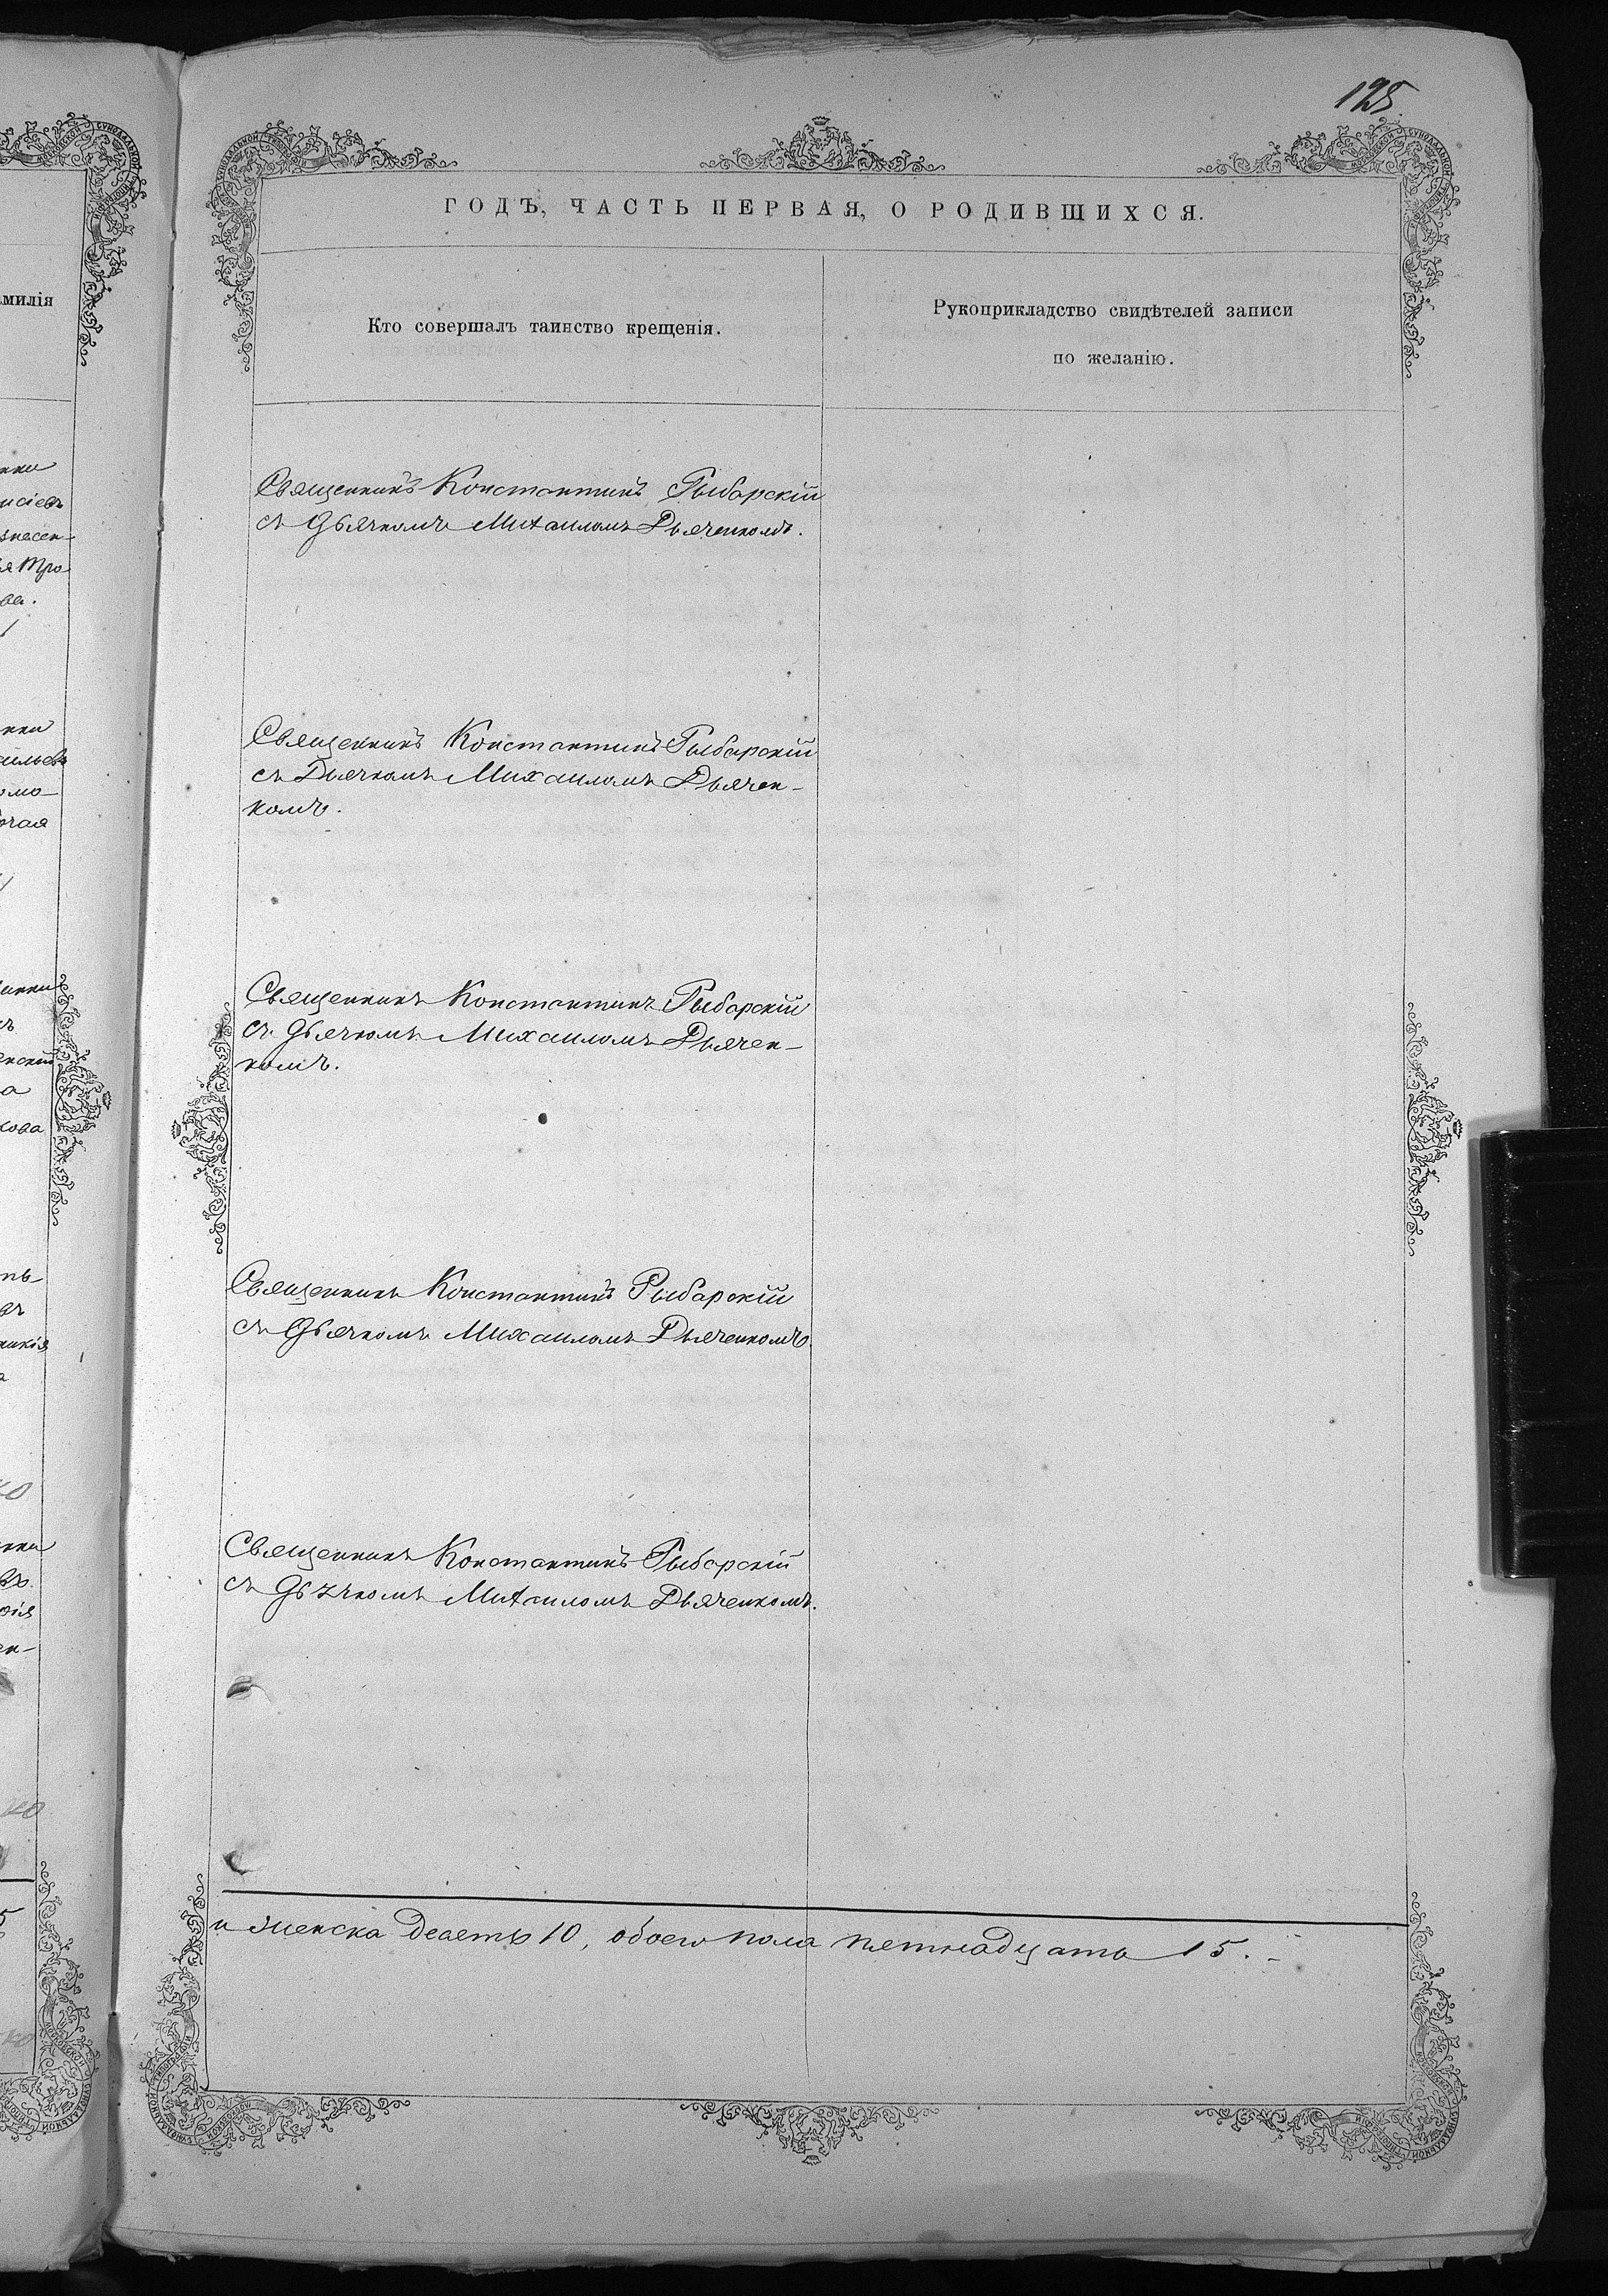 125
ГОДЪ, ЧАСТЬ ПЕРВАЯ, О РОДИВШИХСЯ.
Кто совершалъ таинство крещенія.
Рукоприкладство свидѣтелей записи
по желанію.
Священникъ Константинъ Рыбарскій
съ Дьячкомъ Михаиломъ Дьяченкомъ.
Священникъ Константинъ Рыбарскій
съ Дьячкомъ Михаиломъ Дьячен-
комъ.
Священникъ Константинъ Рыбарскій
съ Дьячкомъ Михаиломъ Дьячен-
комъ.
Священникъ Константинъ Рыбарскій
съ Дьячкомъ Михаиломъ Дьяченкомъ.
Священникъ Константинъ Рыбарскій
съ Дьячкомъ Михаиломъ Дьяченкомъ.
и женска десеть 10, обоего пола пятнадцать 15.-